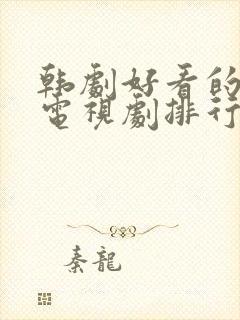 韩劇好看的
電視劇排行
秦龍